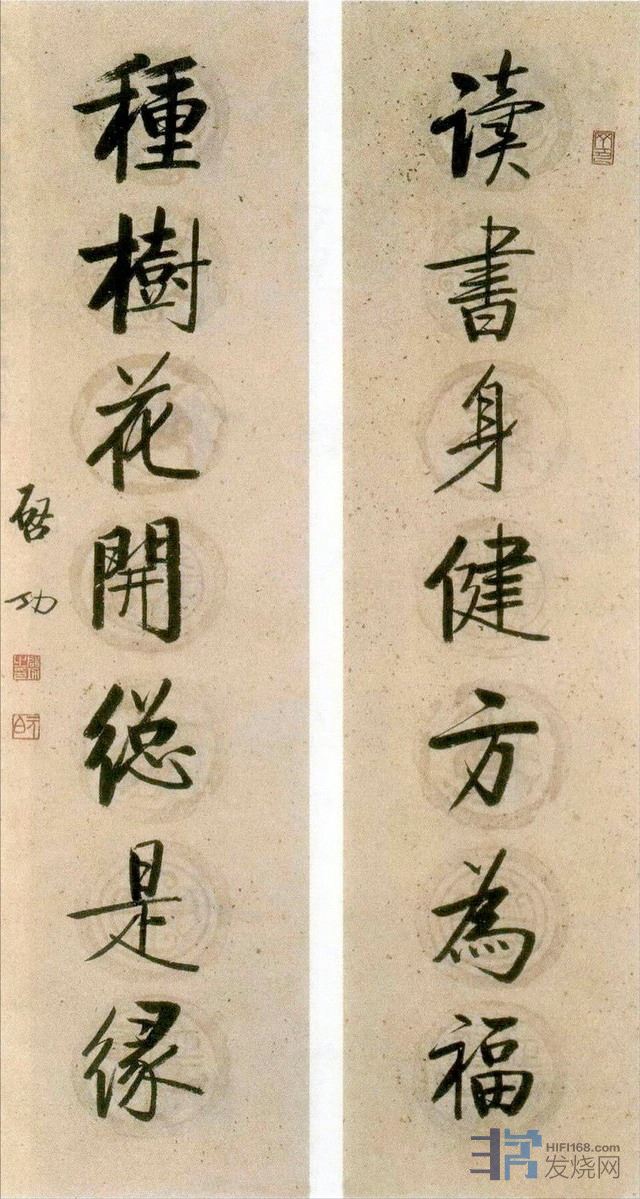 读书身健方為福
種樹花開總是緣
啓功
HIFI168.com
发烧网